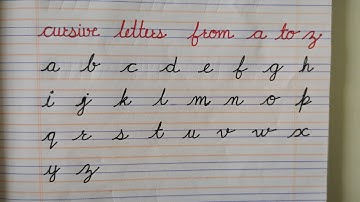 cursive letters from a to z
a b c d e f g h
i j k l m n o p
q r s t u v w x
y z